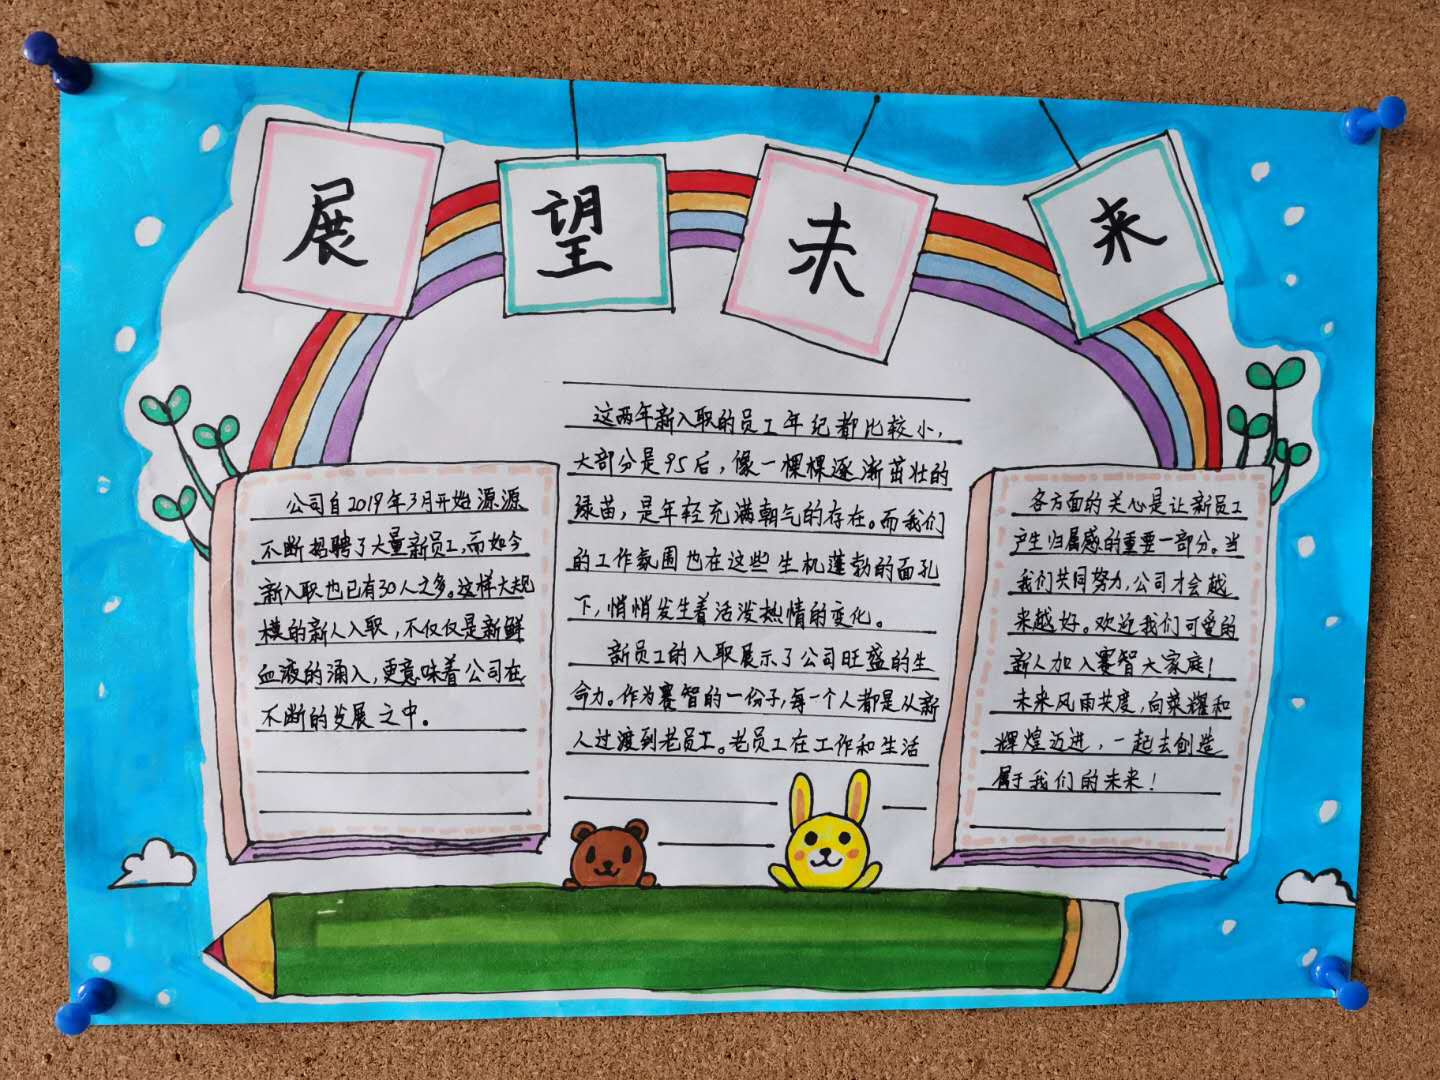 展望未来
公司自2019年3月开始源源
不断招聘了大量新员工,而如今
新入职也已有30人之多。这样大规
模的新人入职,不仅仅是新鲜
血液的涌入,更意味着公司在
不断的发展之中。
这两年新入职的员工年纪都比较小,
大部分是95后,像一棵棵逐渐茁壮的
绿苗,是年轻充满朝气的存在。而我们
的工作氛围也在这些生机蓬勃的面孔
下,悄悄发生着活泼热情的变化。
新员工的入职展示了公司旺盛的生
命力。作为赛智的一份子,每一个人都是从新
人过渡到老员工。老员工在工作和生活
各方面的关心是让新员工
产生归属感的重要一部分。当
我们共同努力,公司才会越
来越好。欢迎我们可爱的
新人加入赛智大家庭!
未来风雨共度,向荣耀和
辉煌迈进,一起去创造
属于我们的未来!